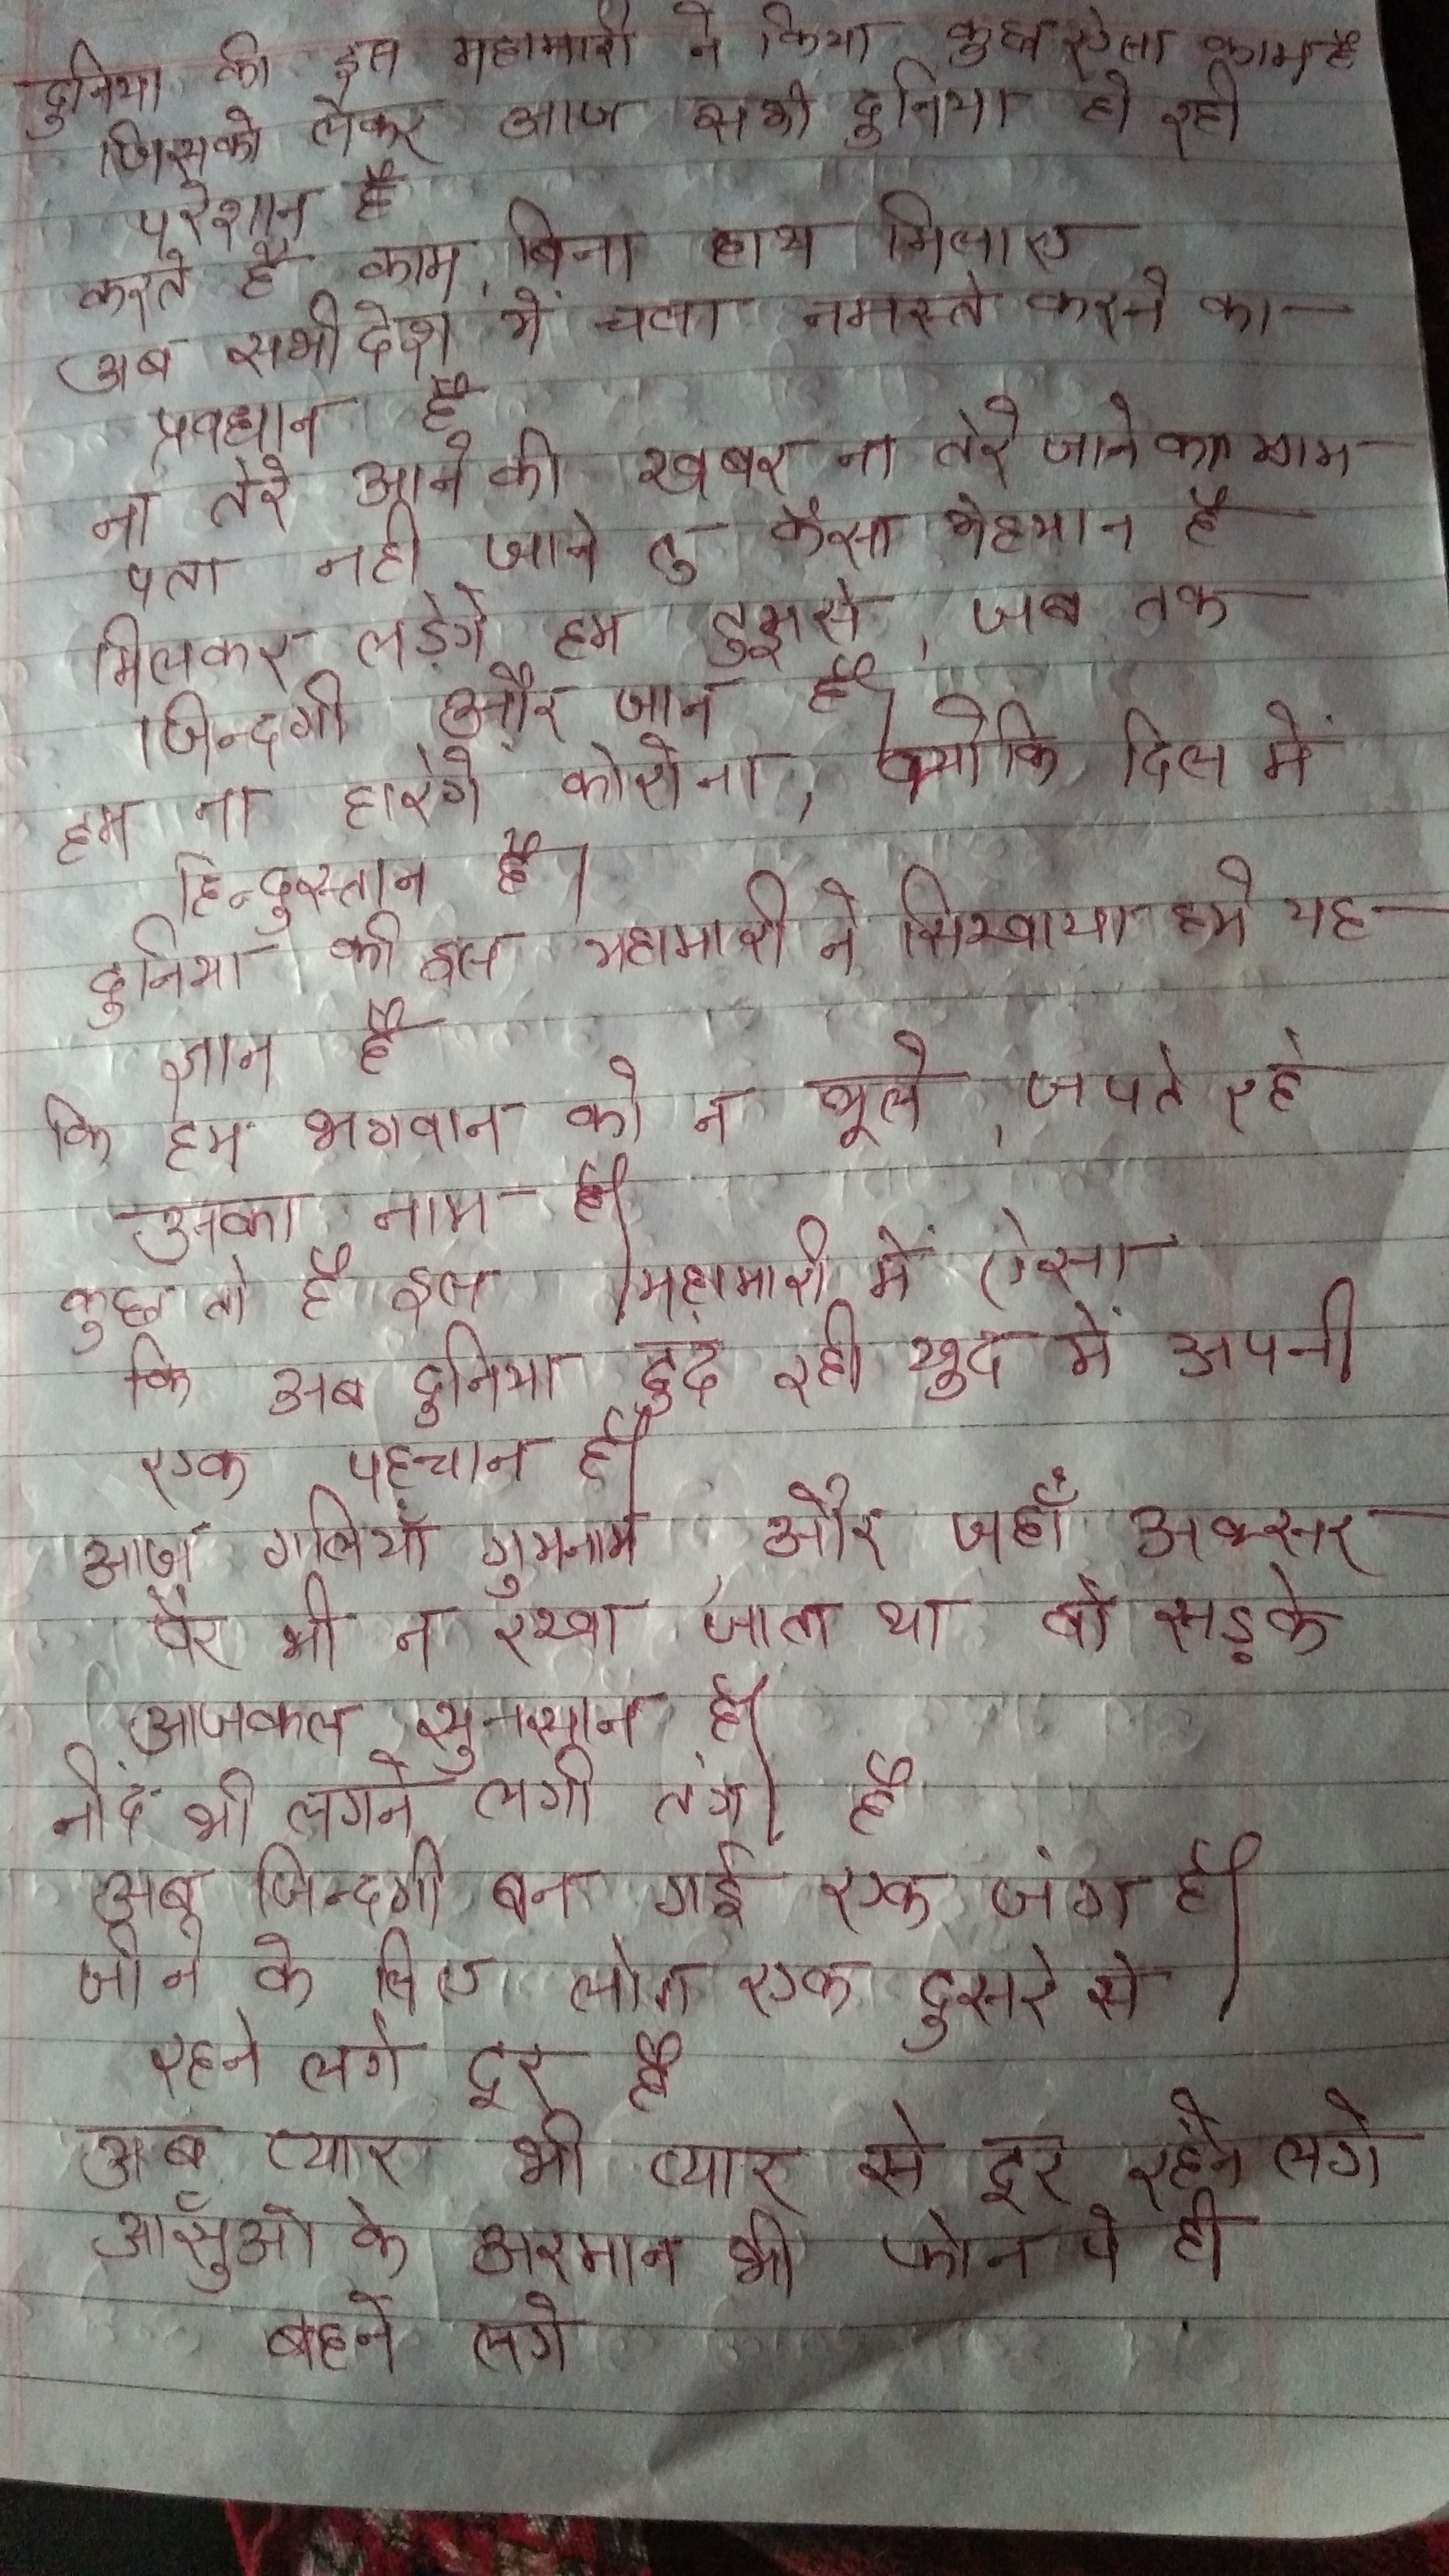 दुनिया की इस महामारी ने किया कुछ ऐसा काम है
जिसको लेकर आज सभी दुनिया हो रही
परेशान है
करते है काम, बिना हाथ मिलाए
अब सभी देश में चला नमस्ते करने का
प्रवधान है
ना तेरे आने की खबर ना तेरे जाने का
पता नही जाने तु कैसा मेहमान है
मिलकर लड़ेगे हम तुझसे, जब तक
जिन्दगी और जान है।
हम ना हारेगे कोरोना, क्योकि दिल में
हिन्दुस्तान है।
दुनिया की इस महामारी ने सिखाया हमे यह
ज्ञान है
कि हम भगवान को न भूले, जपते रहे
उनका नाम है।
कुछ तो है इस महामारी में ऐसा
कि अब दुनिया ढुढ रही खुद में अपनी
एक पहचान है।
आज गलियाँ गुमनाम और जहाँ अक्सर
पैर भी न रखा जाता था वो सड़के
आजकल सुनसान है।
नींद भी लगने लगी तंग है
अब जिन्दगी बन गई एक जंग है।
जीने के लिए लोग एक दुसरे से
रहने लगे दूर है
अब प्यार भी प्यार से दूर रहने लगे
आँसुओ के अरमान भी फोन पे ही
बहने लगे